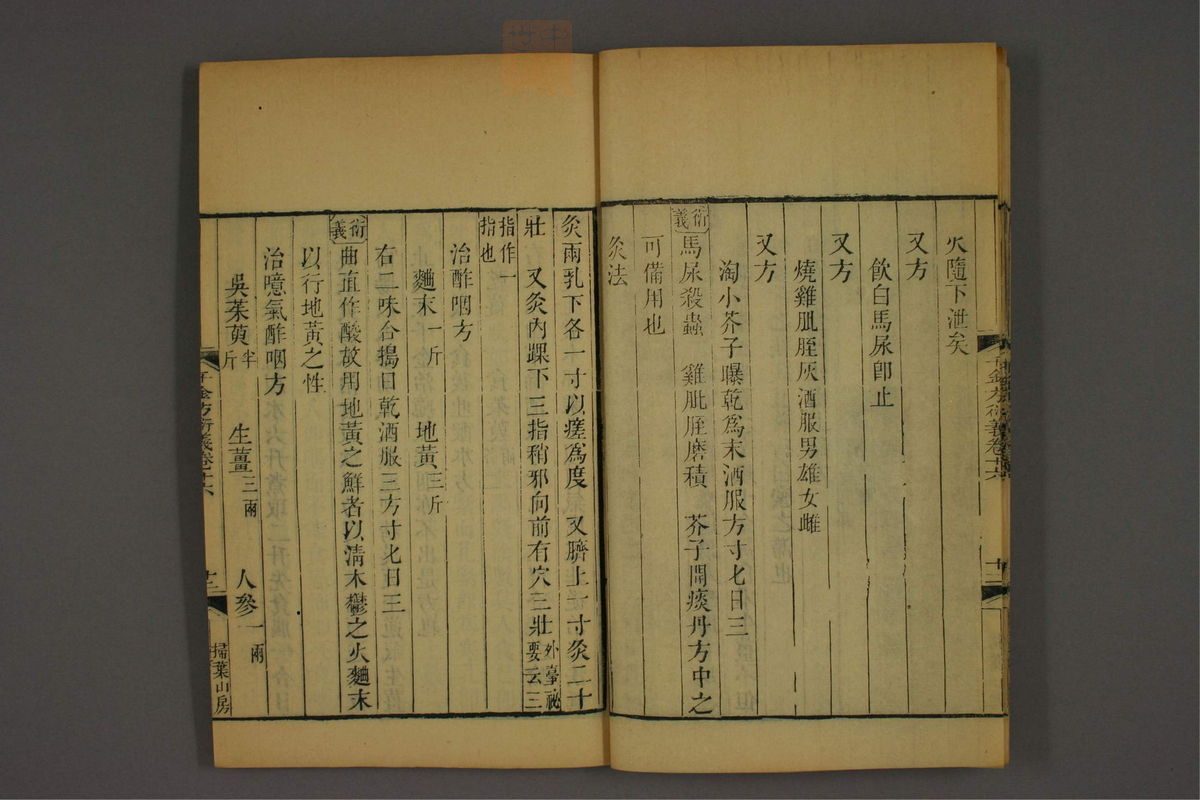 火隨下泄矣
又方
飲白馬尿即止
又方
燒雞肶胵灰酒服男雄女雌
又方
淘小芥子曝乾爲末酒服方寸匕日三
衍義
馬尿殺蟲 雞肶胵磨積 芥子開痰丹方中之
可備用也
灸法
灸兩乳下各一寸以瘥爲度 又臍上一寸灸二十
壯 又灸內踝下三指稍邪向前有穴三壯外臺祕要云三
指作一指也
治酢咽方
麯末一斤 地黃三斤
右二味合搗日乾酒服三方寸匕日三
衍義
曲直作酸故用地黃之鮮者以清木鬱之火麯末
以行地黃之性
治噫氣酢咽方
吳茱萸半斤 生薑三兩 人參一兩
千金方衍義卷十六
掃葉山房